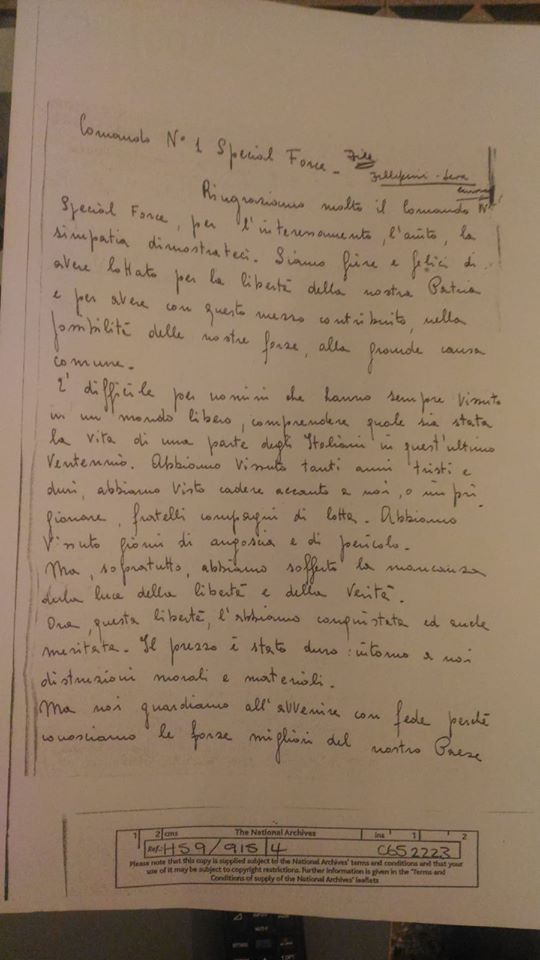 Comando N° 1 Special Force -
Ringraziamo molto il Comando N°
Special Force, per l'interessamento, l'aiuto, la
simpatia dimostrateci. Siamo fiere e felici di
avere lottato per la libertà della nostra Patria
e per avere con questo mezzo contribuito, nella
possibilità delle nostre forze, alla grande causa
comune.
E' difficile per uomini che hanno sempre vissuto
in un mondo libero, comprendere quale sia stata
la vita di una parte degli Italiani in quest'ultimo
Ventennio. Abbiamo vissuto tanti anni tristi e
duri, abbiamo visto cadere accanto a noi, o im pri
gionare, fratelli compagni di lotta. Abbiamo
vissuto giorni di angoscia e di pericolo.
Ma, sopratutto, abbiamo sofferto la mancanza
della luce della libertà e della Verità.
Ora, questa libertà, l'abbiamo conquistata ed anche
meritata. Il prezzo è stato duro: intorno a noi
distruzioni morali e materiali.
Ma noi guardiamo all'avvenire con fede perchè
conosciamo le forze migliori del nostro Paese
1 2 cms The National Archives ins 1 2
Ref.: HS9/915/4 C652223
Please note that this copy is supplied subject to the National Archives' terms and conditions and that your
use of it may be subject to copyright restrictions. Further information is given in the 'Terms and
Conditions of supply of the National Archives' leaflets